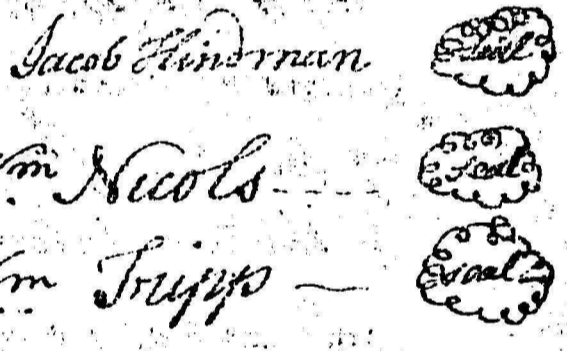 Jacob Hindman seal
Wm Nicols seal
Wm Tripp seal